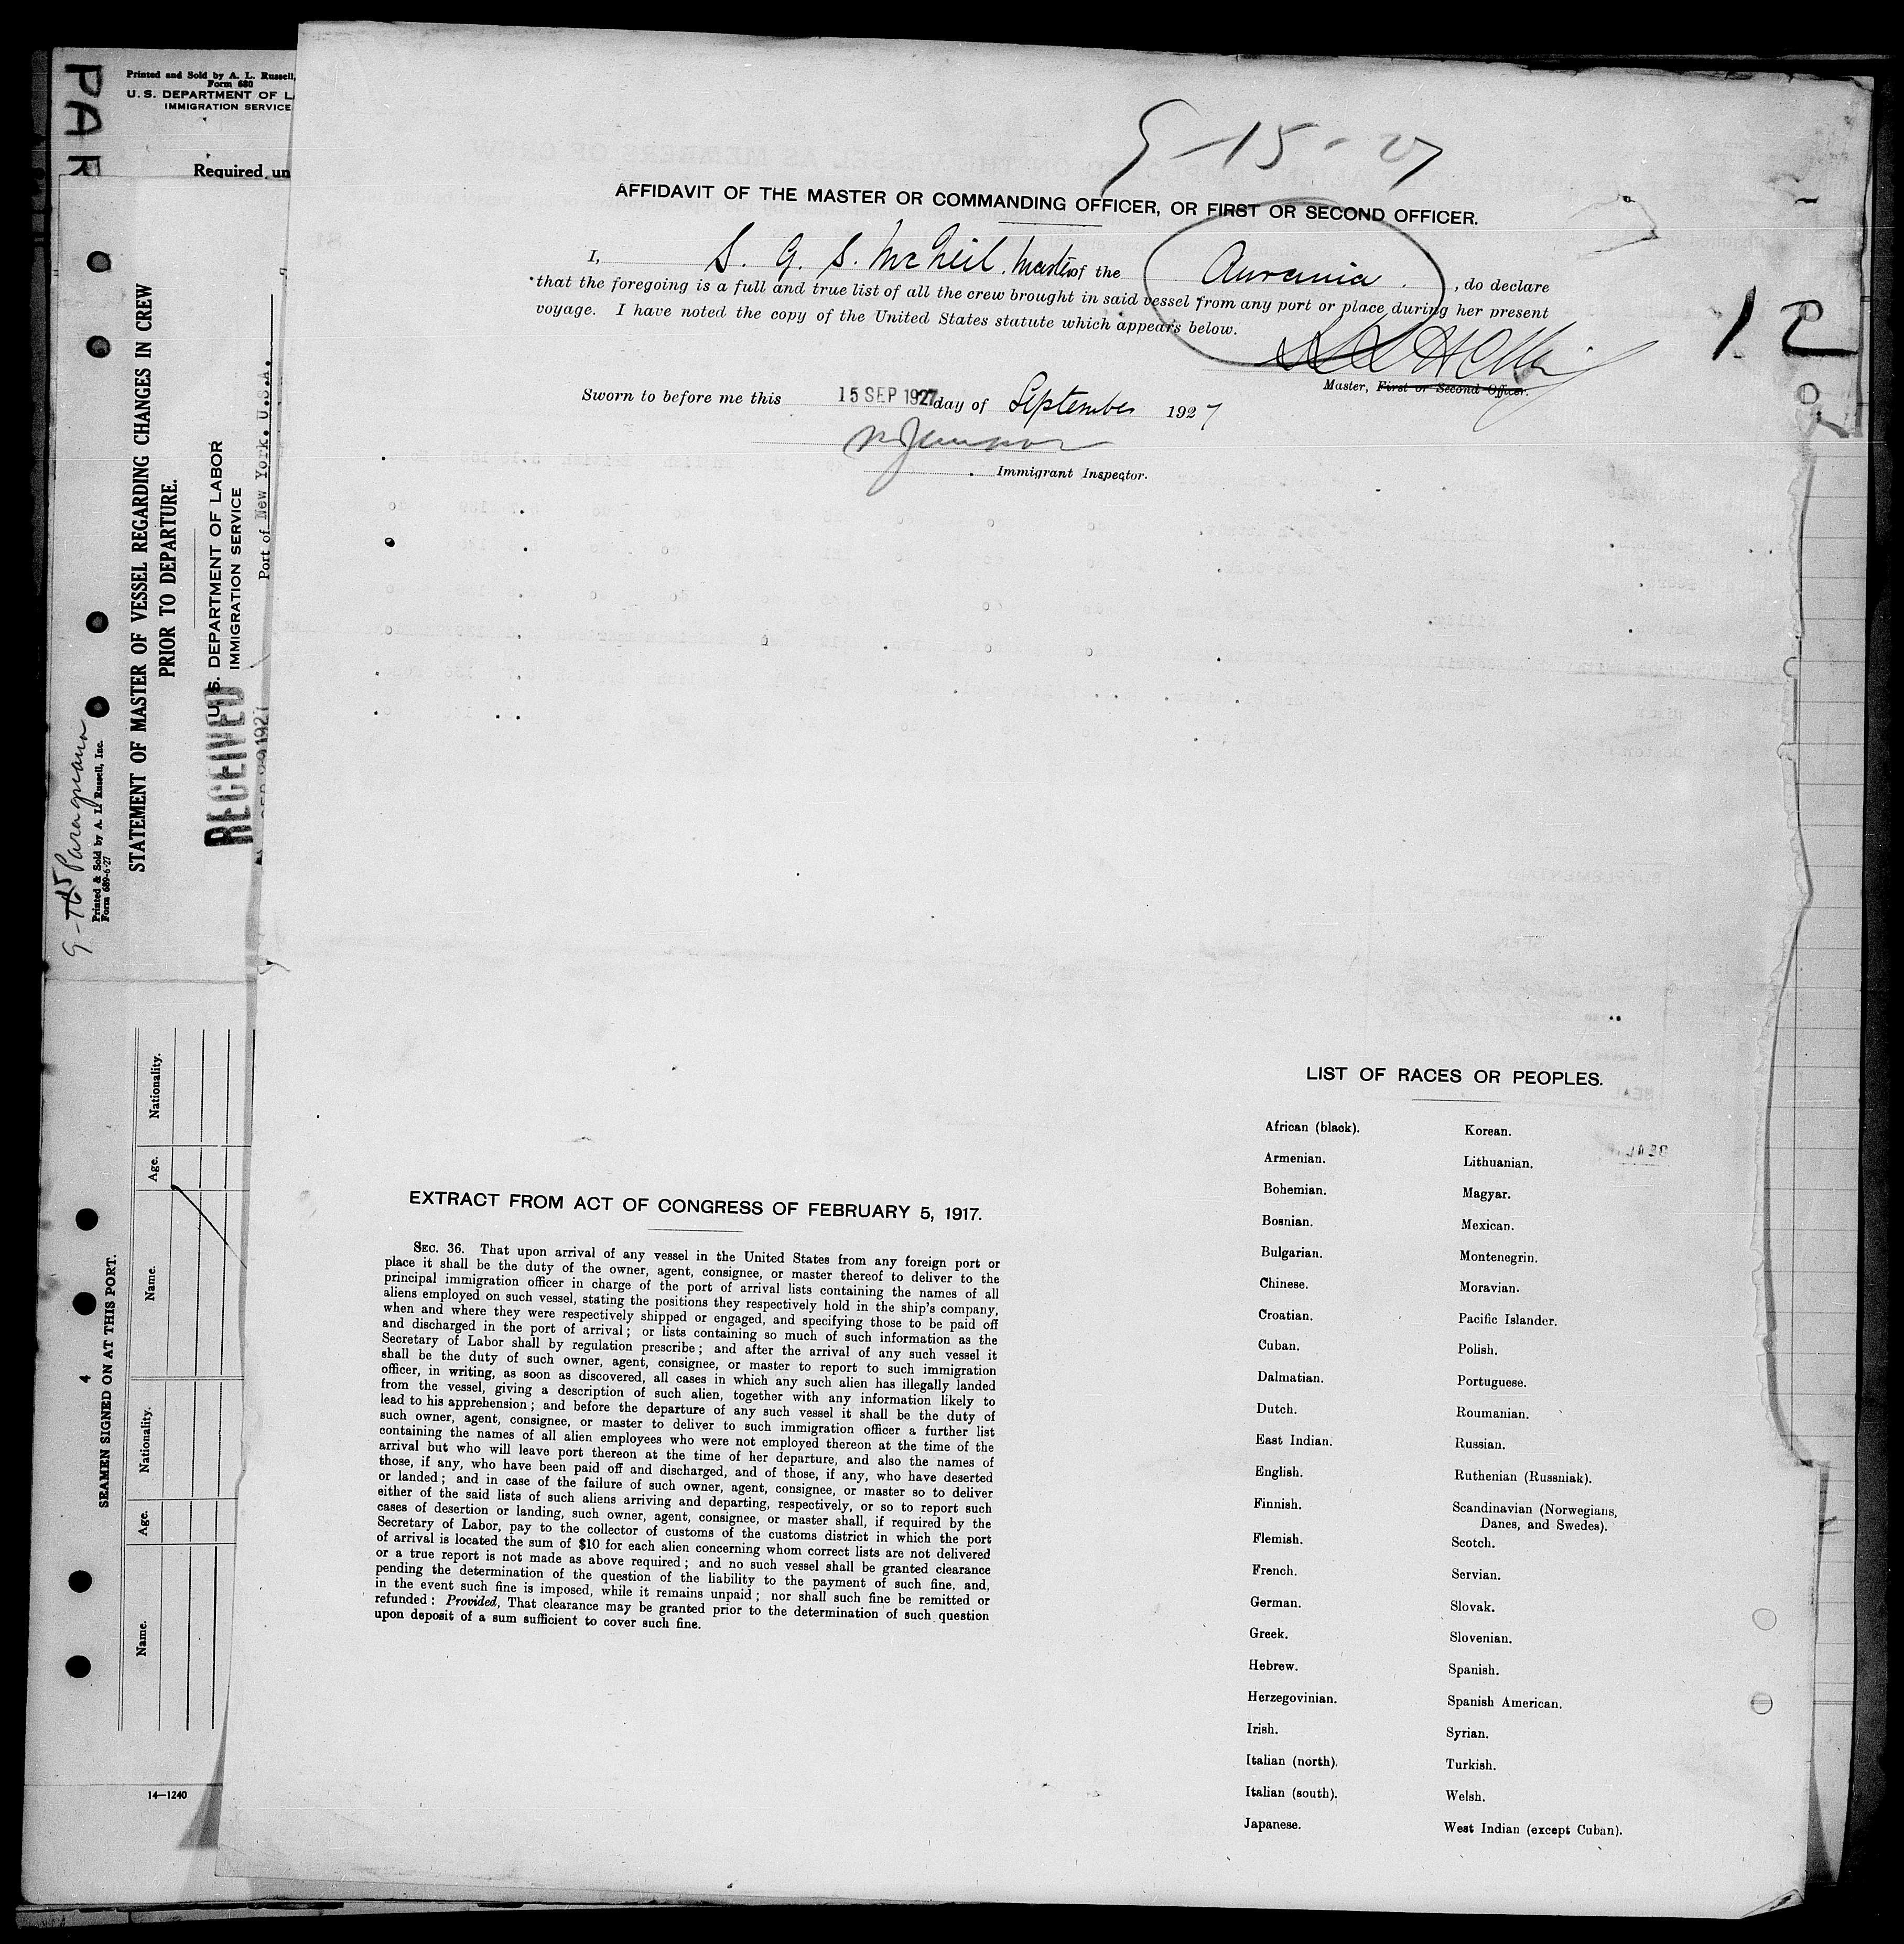 PAR
Printed and Sold by A. L. Russell,
Form 680
U. S. DEPARTMENT OF L
IMMIGRATION SERVICE
Required un
9-15 Paraguana
Printed & Sold by A. L. Russell, Inc.
Form 689-6-27
STATEMENT OF MASTER OF VESSEL REGARDING CHANGES IN CREW
PRIOR TO DEPARTURE.
U. S. DEPARTMENT OF LABOR
IMMIGRATION SERVICE
RECEIVED
1927
Port of New York. U.S.A.
4
SEAMEN SIGNED ON AT THIS PORT.
Name. Age. Nationality. Name. Age. Nationality.
14—1240
9-15-27
AFFIDAVIT OF THE MASTER OR COMMANDING OFFICER, OR FIRST OR SECOND OFFICER.
I, S. G. S. McNeil. Master of the Aurania, do declare
that the foregoing is a full and true list of all the crew brought in said vessel from any port or place during her present
voyage. I have noted the copy of the United States statute which appears below.
12
Master, First or Second Officer.
Sworn to before me this 15 SEP 1927 day of September 1927
Immigrant Inspector.
EXTRACT FROM ACT OF CONGRESS OF FEBRUARY 5, 1917.
SEC. 36. That upon arrival of any vessel in the United States from any foreign port or
place it shall be the duty of the owner, agent, consignee, or master thereof to deliver to the
principal immigration officer in charge of the port of arrival lists containing the names of all
aliens employed on such vessel, stating the positions they respectively hold in the ship's company,
when and where they were respectively shipped or engaged, and specifying those to be paid off
and discharged in the port of arrival; or lists containing so much of such information as the
Secretary of Labor shall by regulation prescribe; and after the arrival of any such vessel it
shall be the duty of such owner, agent, consignee, or master to report to such immigration
officer, in writing, as soon as discovered, all cases in which any such alien has illegally landed
from the vessel, giving a description of such alien, together with any information likely to
lead to his apprehension; and before the departure of any such vessel it shall be the duty of
such owner, agent, consignee, or master to deliver to such immigration officer a further list
containing the names of all alien employees who were not employed thereon at the time of the
arrival but who will leave port thereon at the time of her departure, and also the names of
those, if any, who have been paid off and discharged, and of those, if any, who have deserted
or landed; and in case of the failure of such owner, agent, consignee, or master so to deliver
either of the said lists of such aliens arriving and departing, respectively, or so to report such
cases of desertion or landing, such owner, agent, consignee, or master shall, if required by the
Secretary of Labor, pay to the collector of customs of the customs district in which the port
of arrival is located the sum of $10 for each alien concerning whom correct lists are not delivered
or a true report is not made as above required; and no such vessel shall be granted clearance
pending the determination of the question of the liability to the payment of such fine, and,
in the event such fine is imposed, while it remains unpaid; nor shall such fine be remitted or
refunded: Provided, That clearance may be granted prior to the determination of such question
upon deposit of a sum sufficient to cover such fine.
LIST OF RACES OR PEOPLES.
African (black).
Armenian.
Bohemian.
Bosnian.
Bulgarian.
Chinese.
Croatian.
Cuban.
Dalmatian.
Dutch.
East Indian.
English.
Finnish.
Flemish.
French.
German.
Greek.
Hebrew.
Herzegovinian.
Irish.
Italian (north).
Italian (south).
Japanese.
Korean.
Lithuanian.
Magyar.
Mexican.
Montenegrin.
Moravian.
Pacific Islander.
Polish.
Portuguese.
Roumanian.
Russian.
Ruthenian (Russniak).
Scandinavian (Norwegians,
Danes, and Swedes).
Scotch.
Servian.
Slovak.
Slovenian.
Spanish.
Spanish American.
Syrian.
Turkish.
Welsh.
West Indian (except Cuban).